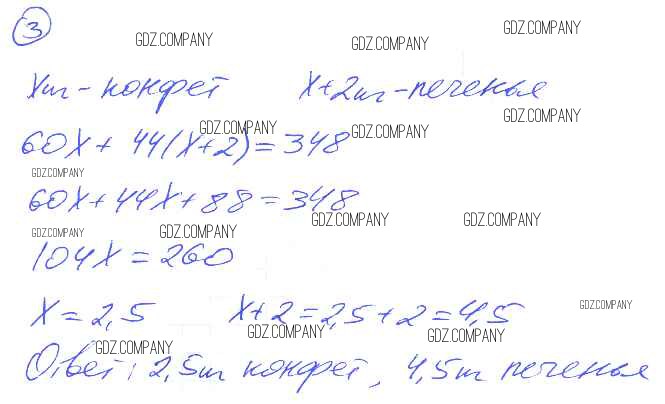 3
GDZ.COMPANY GDZ.COMPANY GDZ.COMPANY
x кг - конфет x+2 кг - печенья
GDZ.COMPANY GDZ.COMPANY GDZ.COMPANY
60x + 44(x+2) = 348
GDZ.COMPANY
60x + 44x + 88 = 348
GDZ.COMPANY GDZ.COMPANY GDZ.COMPANY GDZ.COMPANY
104x = 260
x = 2,5 x+2 = 2,5+2 = 4,5
GDZ.COMPANY GDZ.COMPANY GDZ.COMPANY GDZ.COMPANY
Ответ: 2,5 кг конфет, 4,5 кг печенья